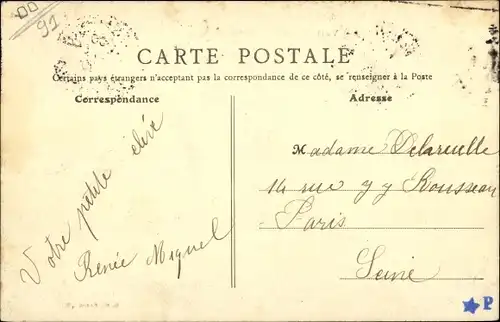 91
CARTE POSTALE
Certains pays étrangers n'acceptant pas la correspondance de ce côté, se renseigner à la Poste
Correspondance
Adresse
Votre petite élève
Renée Miquel
Madame Delareulle
14 rue JJ Rousseau
Paris
Seine
P